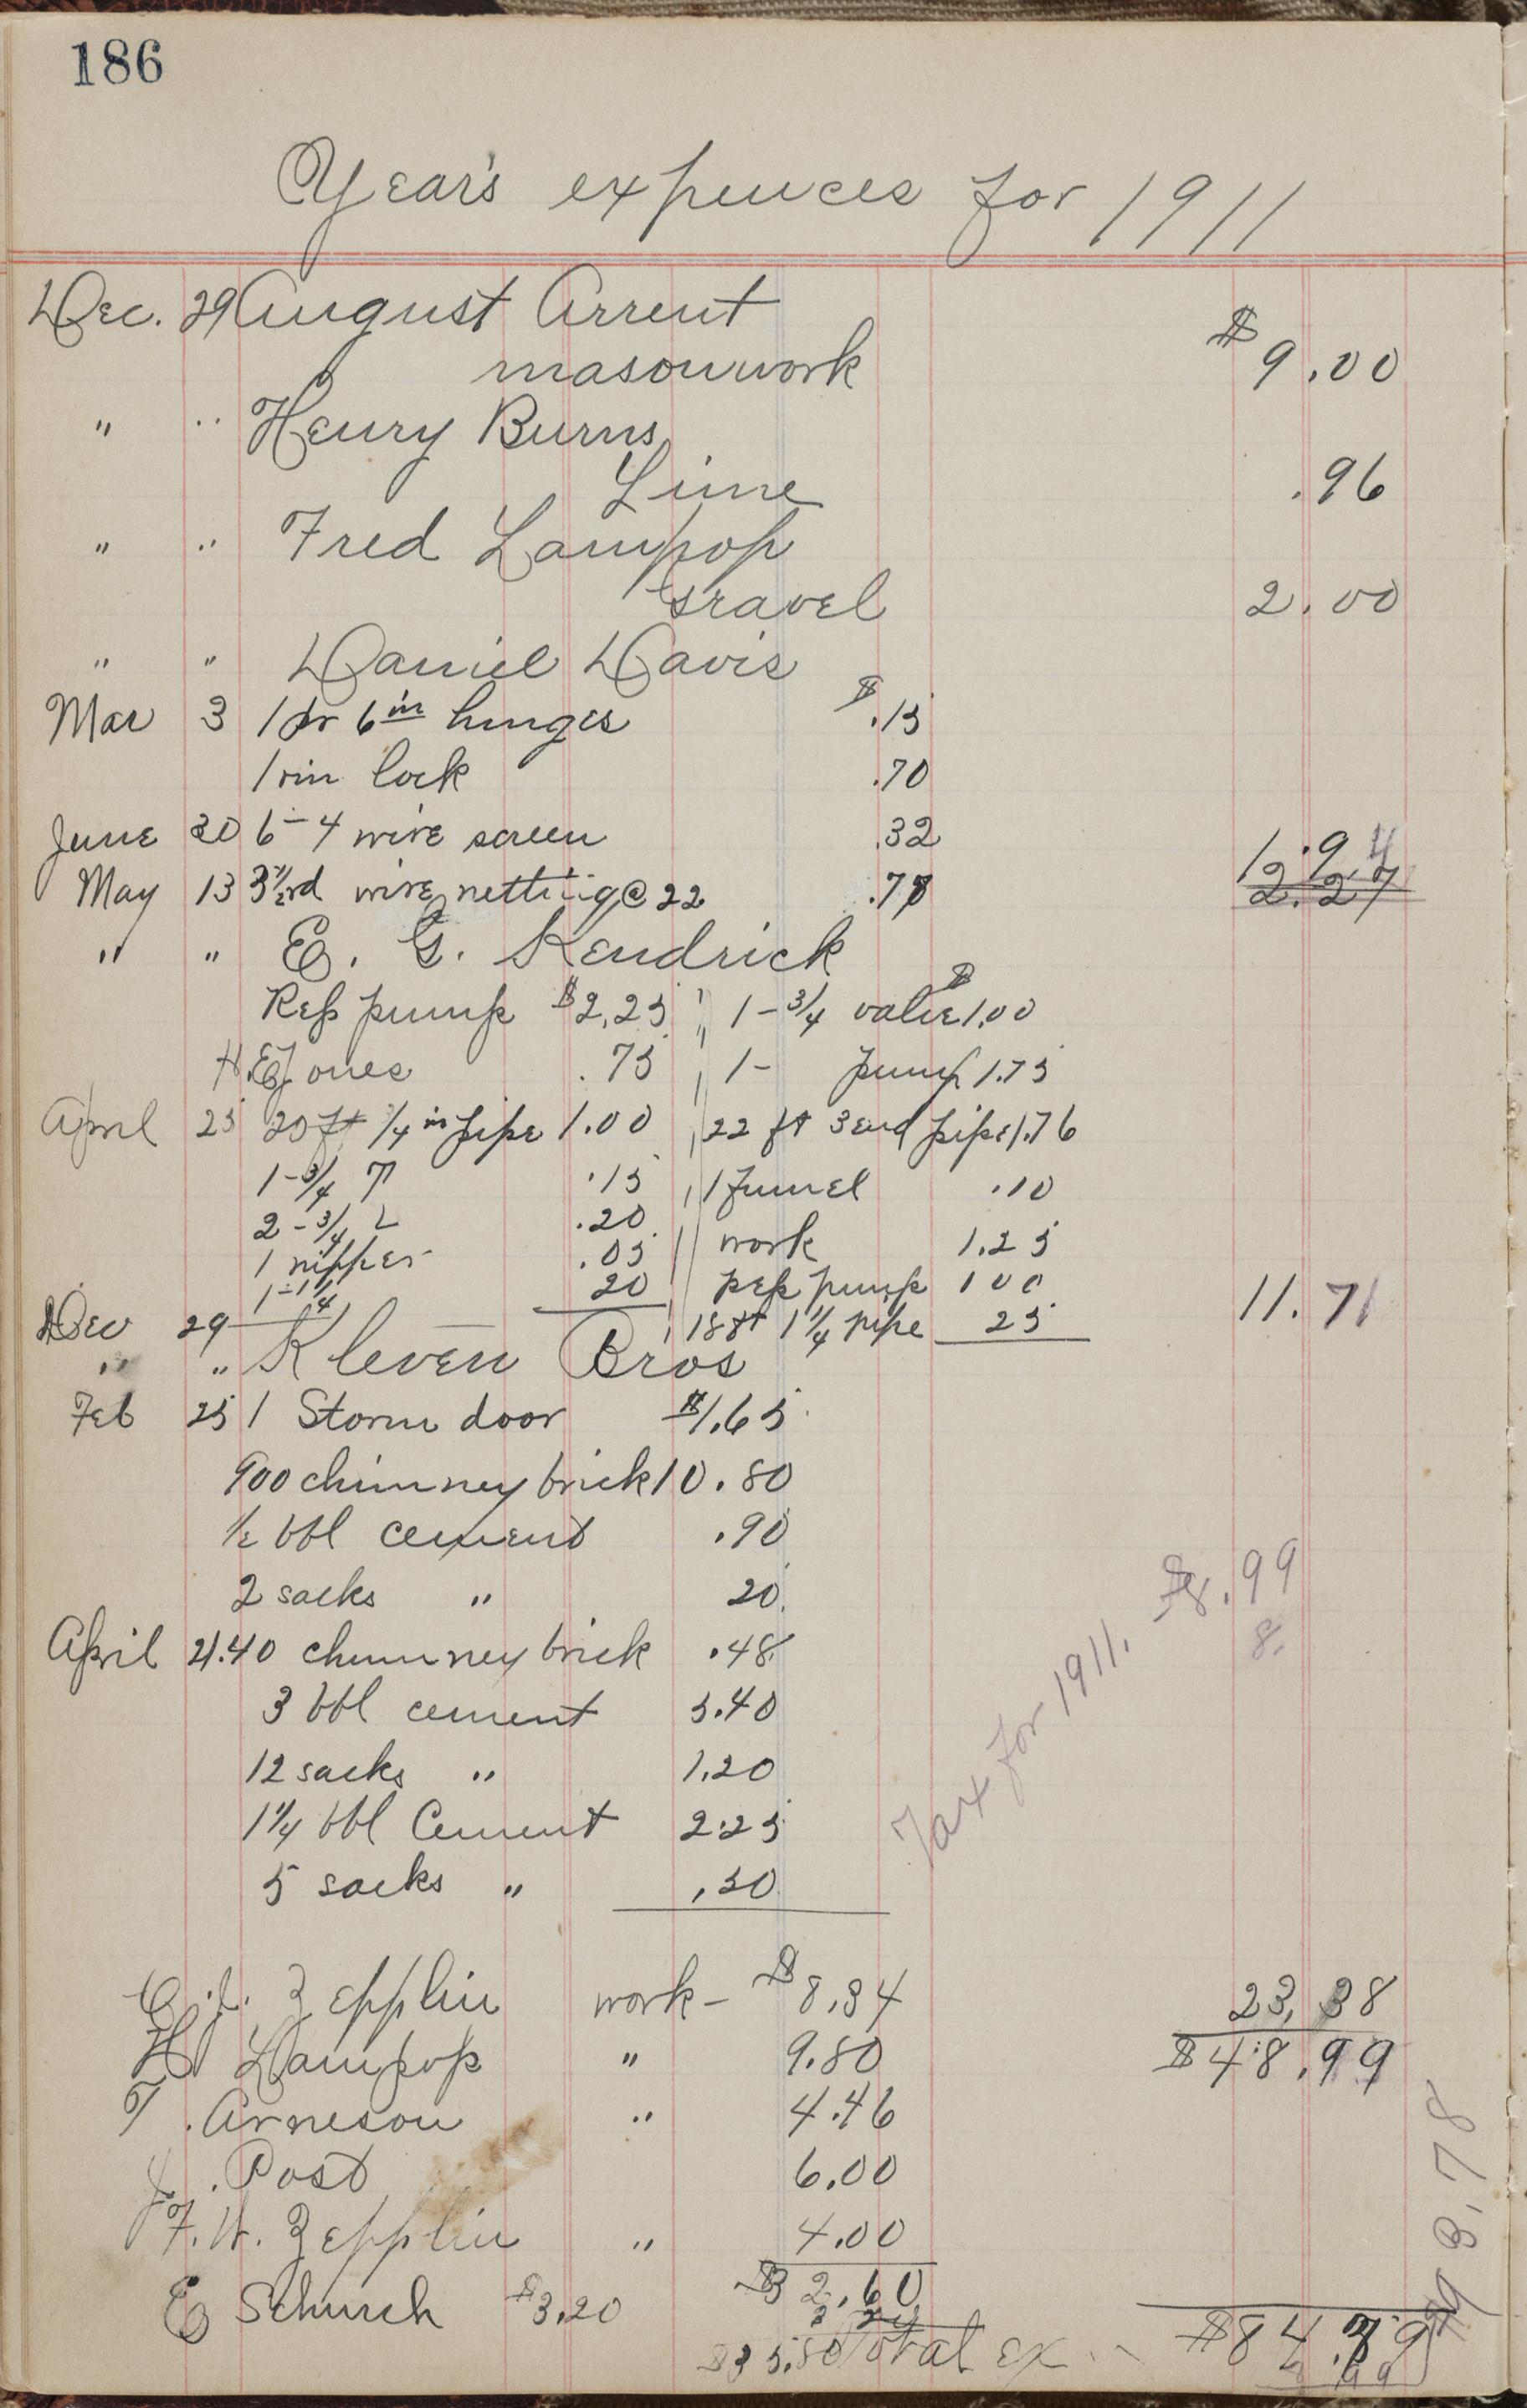 186
Year's expences for 1911
Dec. 29 August Arrent
masonwork $ 9.00
" " Henry Burns
Lime .96
" " Fred Lampop
Gravel 2.00
" " Daniel Davis
Mar 3 1 pr 6 in hinges $ .15
1 rim lock .70
June 30 6-4 wire screen .32
1.94
May 13 3½ yrd wire netting @ 22 .77
2.27
" " E. G. Kendrick
Rep pump $2.25 " 1-3/4 valve $1.00
H.E. Jones .75 " 1- pump 1.75
April 25 20 ft 1/4 in pipe 1.00 22 ft 3 end pipe 1.76
1-3/4 T .15 1 funnel .10
2-3/4 L .20 work 1.25
1 nipper .05
1-1 1/4 20 rep pump 1 00 11.71
Dec 29 18 ft 1 1/4 pipe 25
" " Kleven Bros
Feb 25 1 Storm door $1.65
900 chimney brick 10.80
½ bbl cement .90
2 sacks " 20
April 21. 40 chimney brick .48
3 bbl cement 5.40
12 sacks " 1.20
1¼ bbl Cement 2.25
5 sacks " .50
Tax for 1911. $8.99
8.
C.J. Zepplin work - $8.34 23.38
H Lampop " 9.80 $48.99
T. Arneson " 4.46
J. Post 6.00
F.W. Zepplin " 4.00
$32.60
E Schurch $3.20
3 20
$35.80 Total ex. $84.79
8.99
$93.78